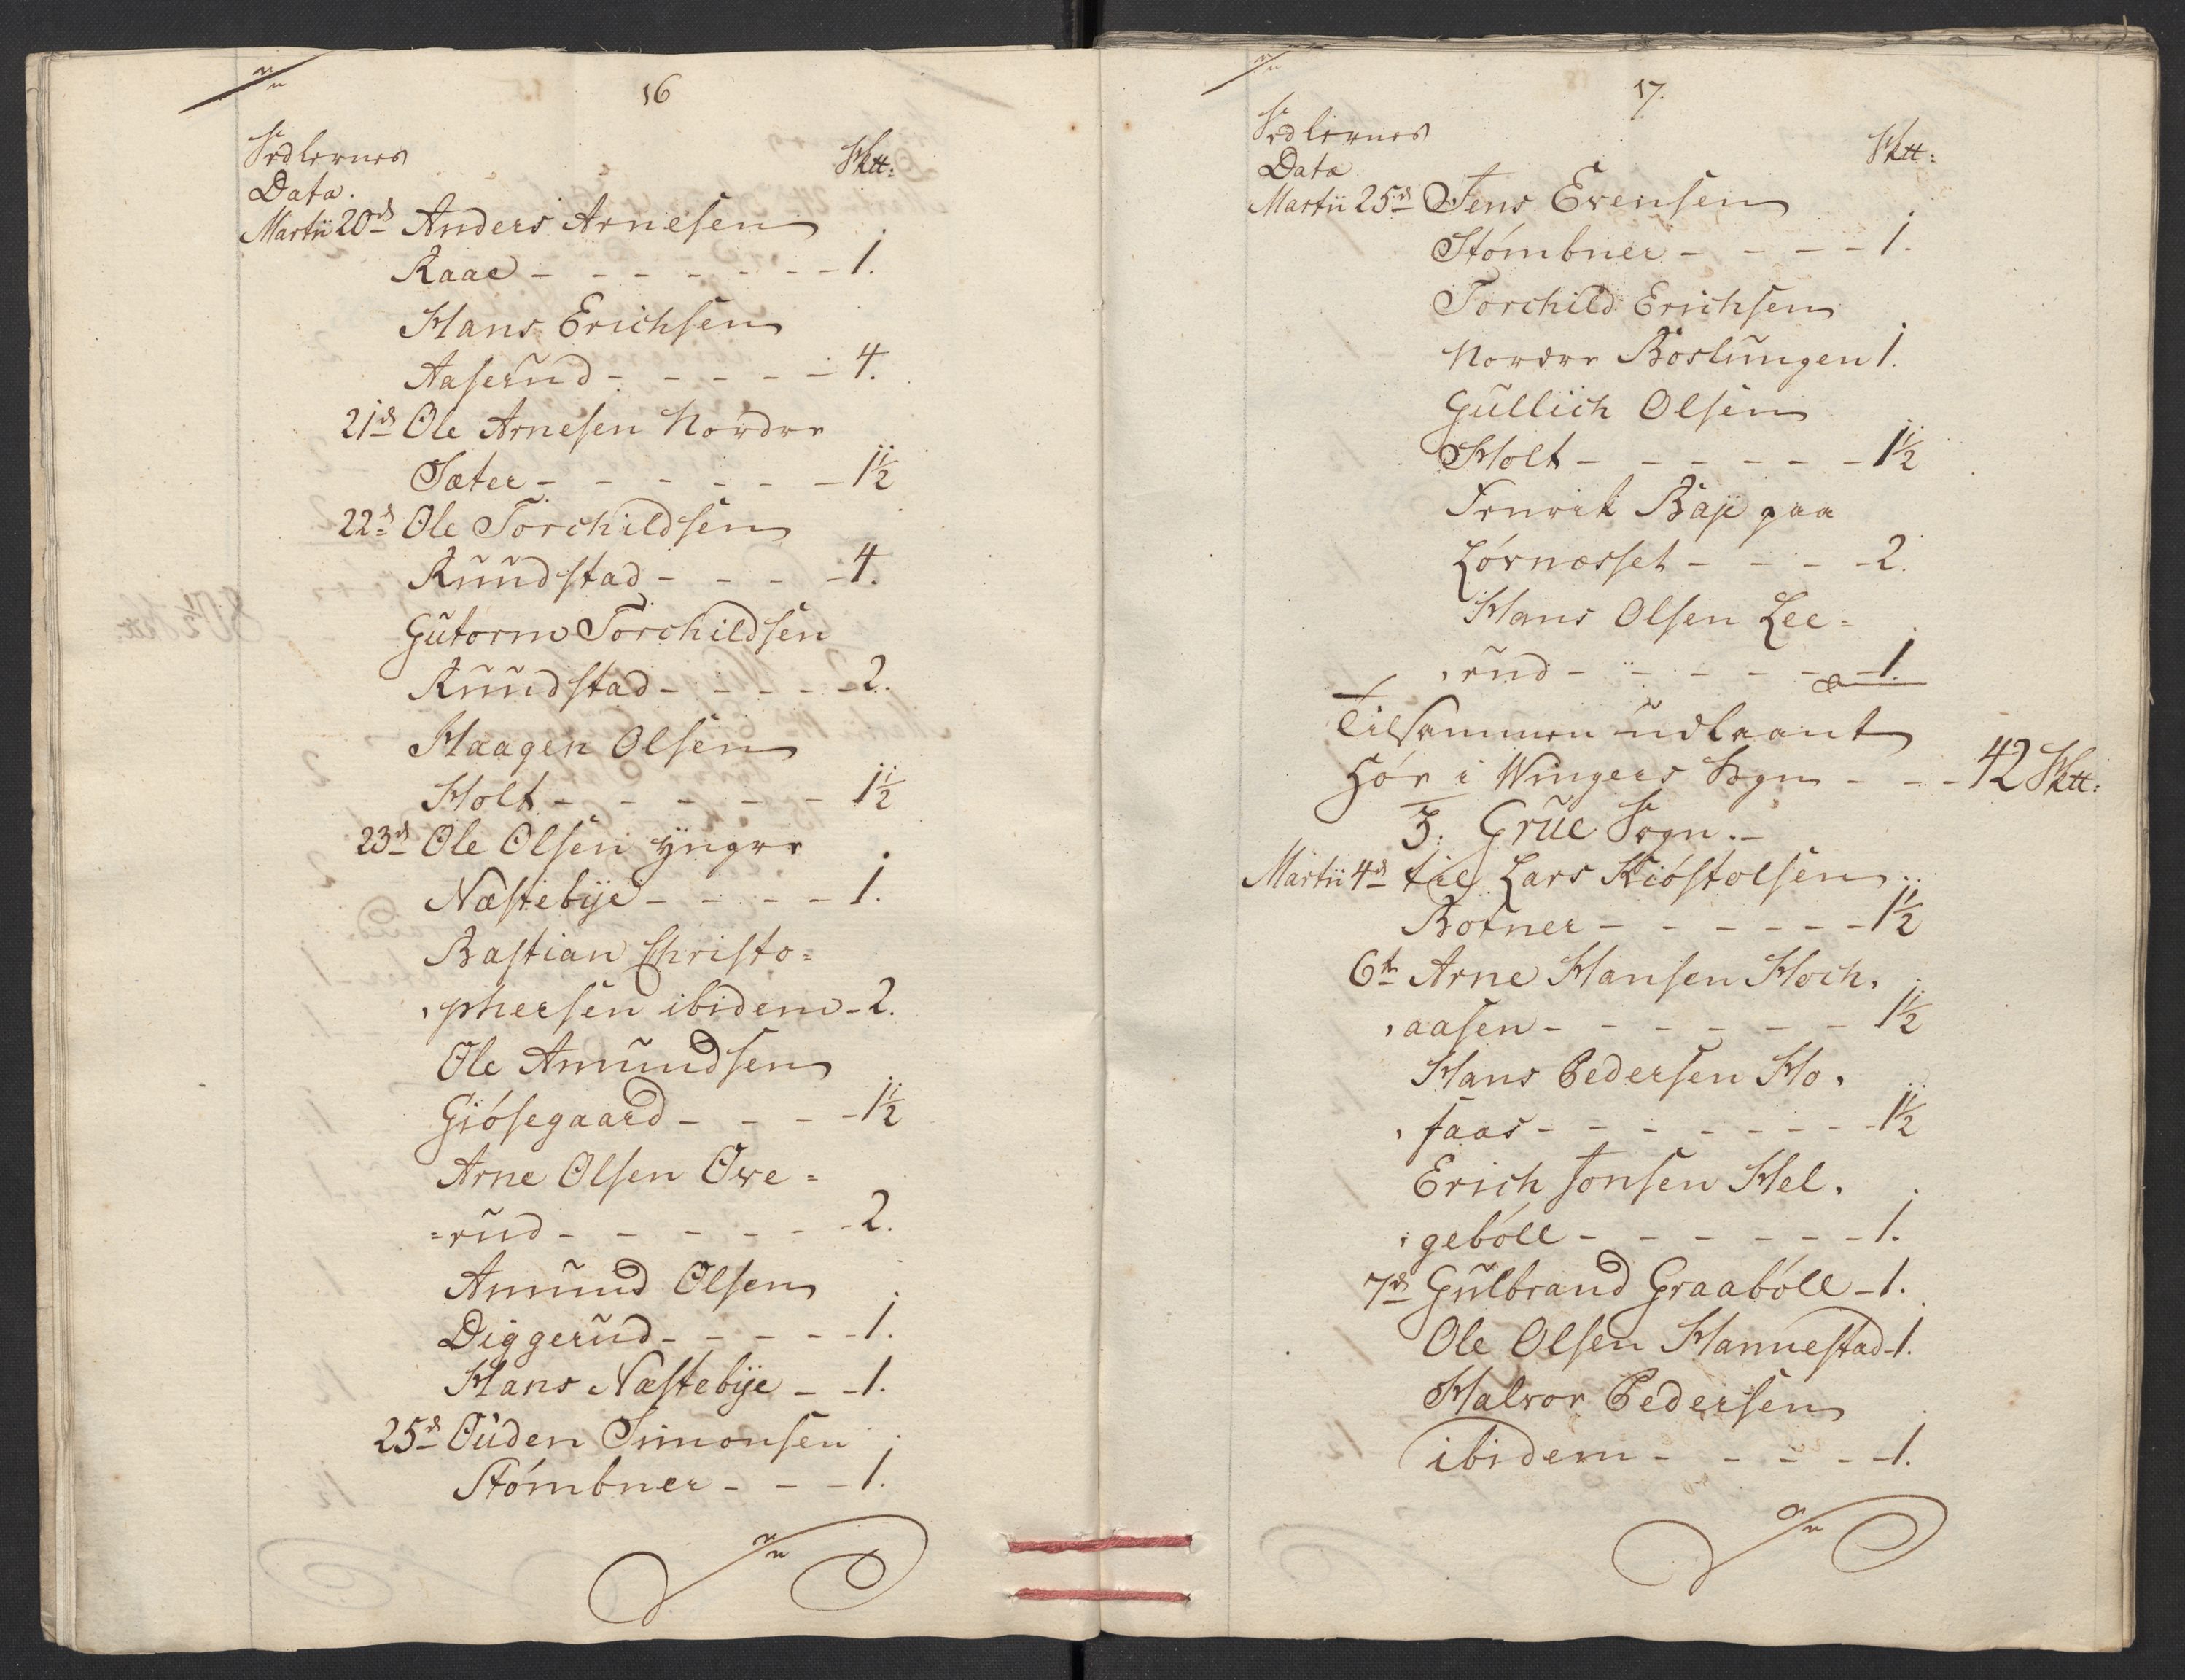 16
Sedlernes
Data.
Sktt:
Martii 20de Anders Arnesen
Raae - - - - - - - 1.
Hans Erichsen
Aaserud - - - - - 4.
21de Ole Arnesen Nordre
Sæter - - - - - - 1½
22de Ole Torchildsen
Ruudstad - - - - 4.
Gutorm Torchildsen
Ruudstad - - - - - 2.
Haagen Olsen
Holt - - - - - - 1½
23de Ole Olsen yngre
Næstebÿe - - - - 1.
Bastian Christo=
,phersen ibidem - 2.
Ole Amundsen
Giósegaard - - - - 1½
Arne Olsen Ove=
=rud - - - - - - 2.
Amund Olsen
Diggerud - - - - - 1.
Hans Næstebÿe - - 1.
25de Ouden Simonsen
Stómbner - - - 1.
17.
Sedlernes
Data
Sktt:
Martii 25de Jens Evensen
Stómbner - - - - 1.
Torchild Erichsen
Nordre Boslungen 1.
Gullich Olsen
Holt - - - - - - 1½
Fenrik Baÿe paa
Lóvnæsset - - - - 2.
Hans Olsen Lee=
,rud - - - - - - 1.
Tilsammen udlaant
Hór i Wingers Sogn - - - 42 Sktt:
3: Grue Sogn.-
Martii 4de til Lars Kióstolsen
Botner - - - - - - 1½
6te Arne Hansen Hoch,
,aasen - - - - - - 1½
Hans Pedersen Ho,
,faas - - - - - - - - 1½
Erich Jonsen Hel,
,gebóll - - - - - - 1.
7de Gulbrand Graabóll - 1.
Ole Olsen Hannestad - 1.
Halvor Pedersen
ibidem - - - - - 1.